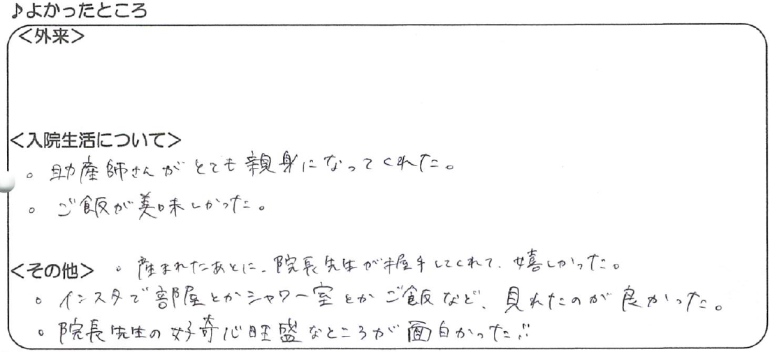 ♪よかったところ
＜外来＞
＜入院生活について＞
。助産師さんがとても親身になってくれた。
。ご飯が美味しかった。
＜その他＞ 。産まれたあとに、院長先生が握手してくれて、嬉しかった。
。インスタで部屋とかシャワー室とかご飯など、見れたのが良かった。
。院長先生の好奇心旺盛なところが面白かった!!